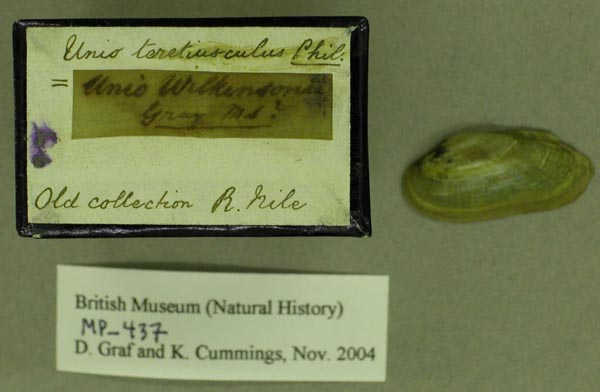 Unio teretiusculus Phil.
= Unio Wilkinsonii
Gray Ms?
Old collection R. Nile
British Museum (Natural History)
MP-437
D. Graf and K. Cummings, Nov. 2004